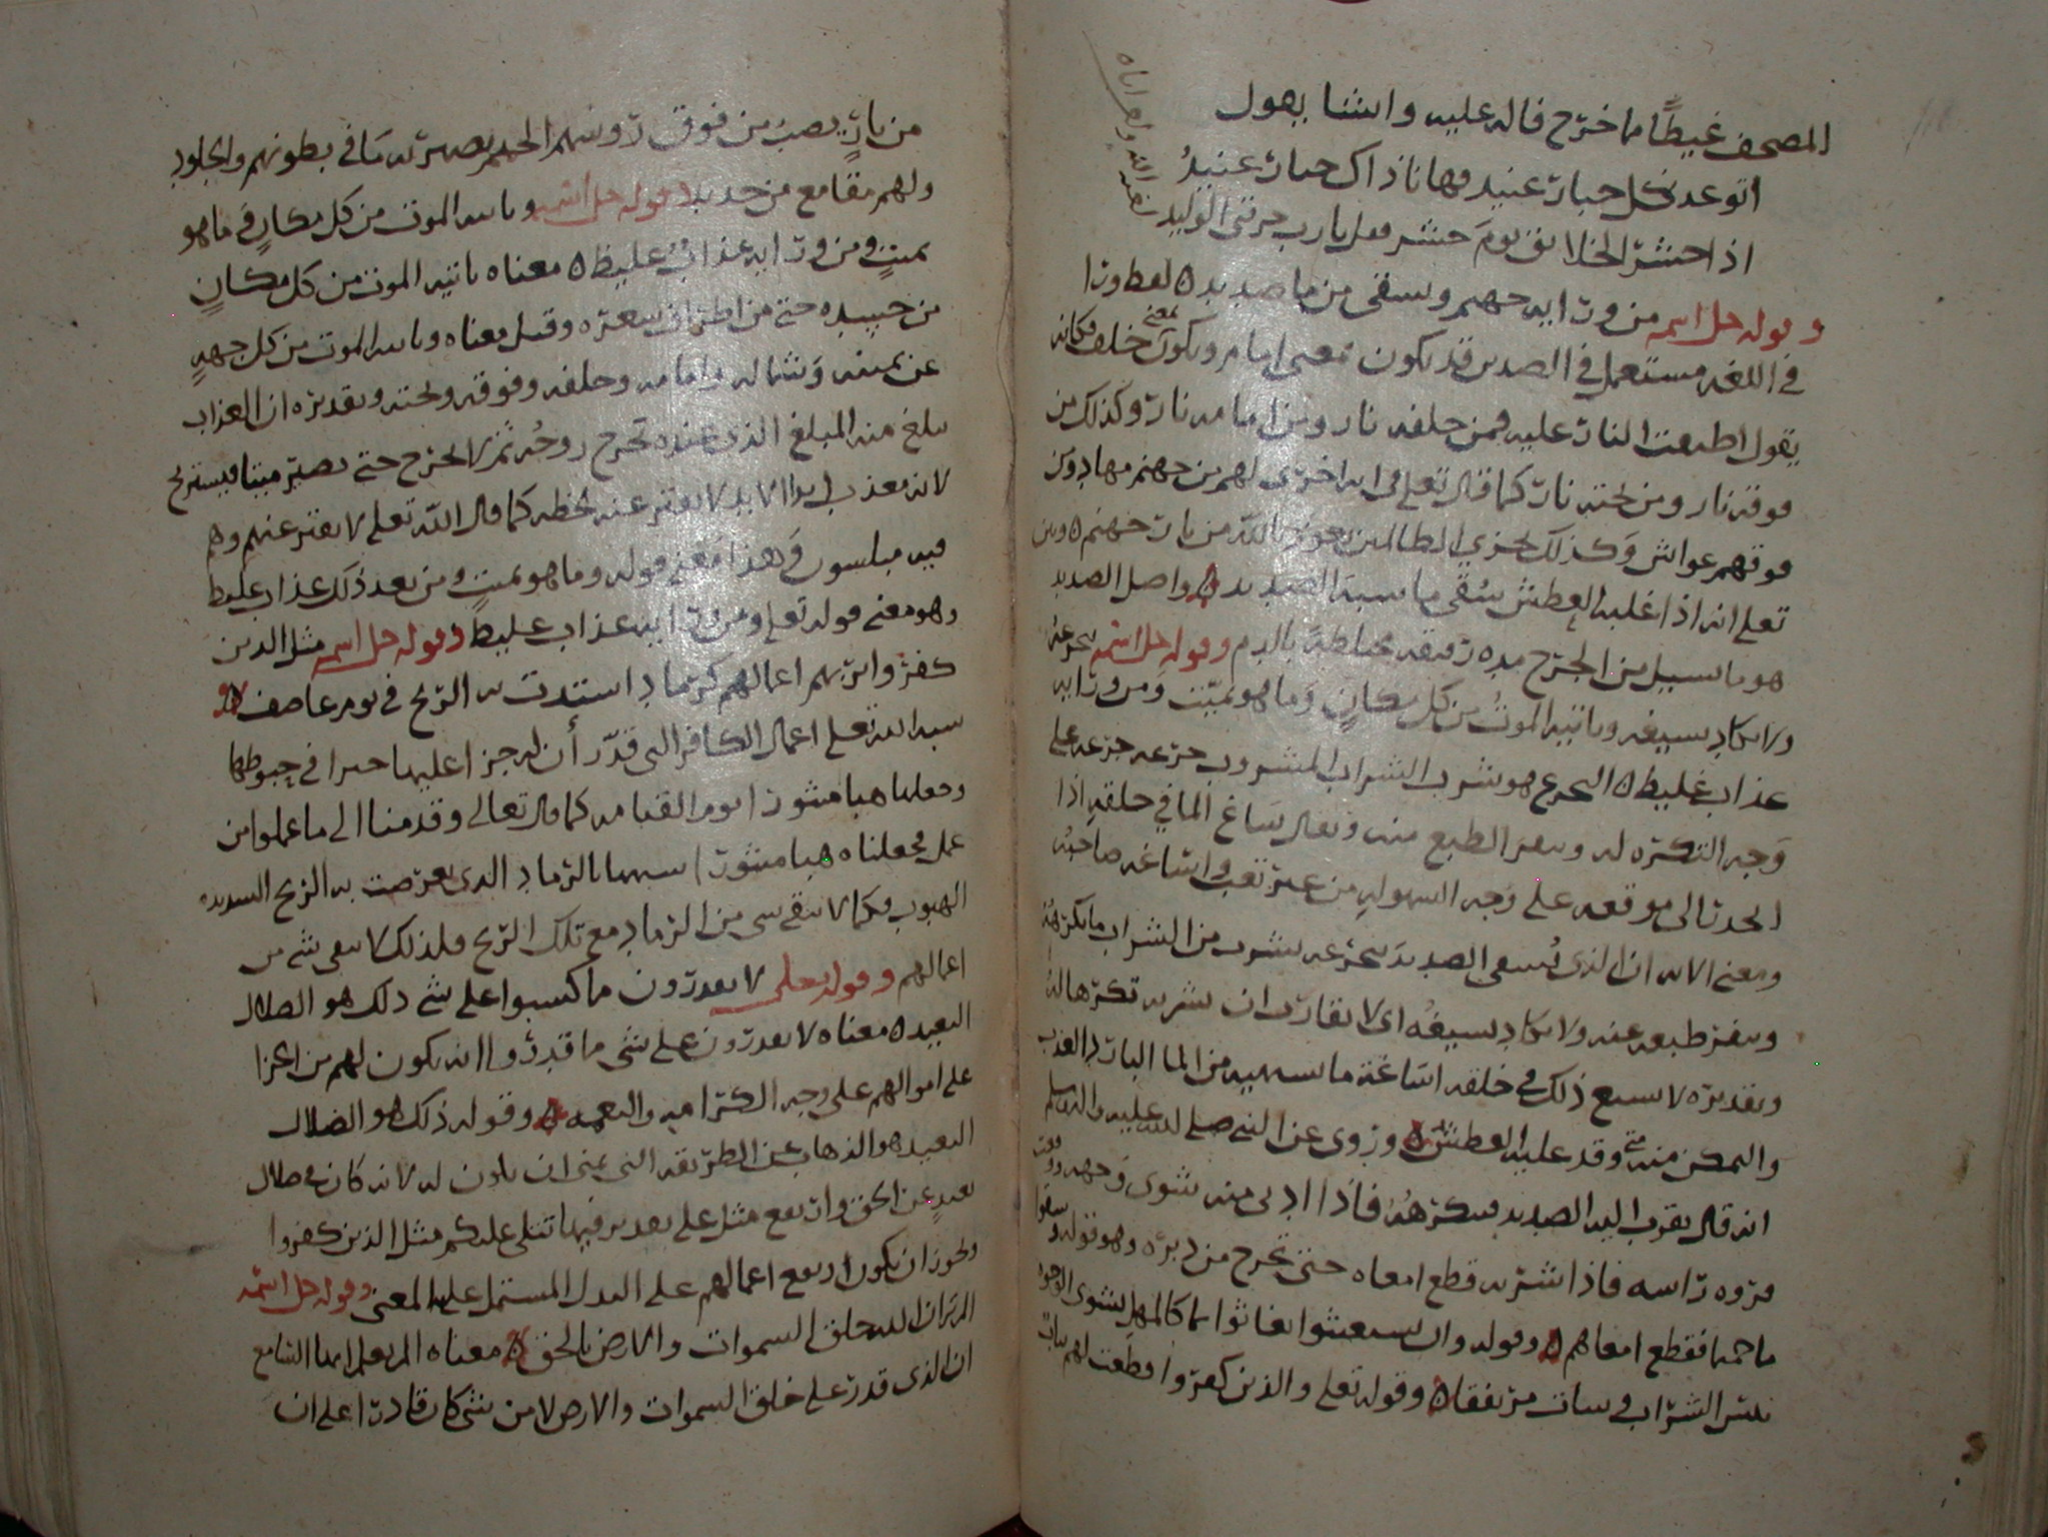 المصحف غيظًا مما خرج فاله عليه وانشا يقول
اتوعد كل جبار عنيد فها انا ذاك جبار عنيدُ
اذا حشر الخلائق يوم حشر فقل يا رب حرقني الوليد
وقوله جل اسمه من ورائه جهنم ويسقى من ما صديد ه لفظ ورا
في اللغه مستعمل في الضدين قد يكون بمعنى امام ويكون بمعنى خلف فكانه
يقول اطبقت النار عليه فمن خلفه نار ومن امامه نار وكذلك من
فوقه نار ومن تحته نار كما قال تعلى في ايه اخرى لهم من جهنم مهاد ومن
فوقهم غواش وكذلك نجزي الظالمين نعوذ بالله من نار جهنم ه وبين
تعلى انه اذا غلبه العطش سُقي ما يشبه الصديد ه واصل الصديد
هو ما يسيل من الجرح مده رقيقه مختلطة بالدم وقوله جل اسمه يتجرعه
ولا يكاد يسيغه وياتيه الموتُ من كل مكانٍ وما هو بميّت ومن ورائه
عذاب غليظ ه التجرع هو شرب الشراب المشروب جرعه جرعه على
وجه التكره له ونفر الطبع منه ويقال ساغ الما في حلقه اذا
انحدر الى موقعه على وجه السهوله من غير تعب واساغه صاحبُه
ومعنى الايه ان الذي يُسقى الصديد يتجرعه يشرب من الشراب ما يكرهه
وينفر طبعه عنه ولا يكاد يسيغُه اي لا يقارب ان يشربه تكرها له
وتقديره لا يسيغ ذلك في حلقه اساغة ما يشتهيه من الما البارد العذب
والتمكن منه وقد عليه العطش ه وروى عن النبي صلى الله عليه واله وسلم
انه قال يقرب اليه الصديد فيكرهُه فاذا ادنى منه شوى وجهه ووقعت
فروه راسه فاذا شربه قطع امعاه حتى تخرج من دبره وهو قوله وسقوا
ما حميما فقطع امعاهم ه وقوله وان يستغيثوا يغاثوا بما كالمهل يشوي الوجوه
بئس الشراب وسات مرتفقا ه وقوله تعلى والذين كفروا قطعت لهم ثياب
من نارٍ يصب من فوق رؤسهم الحميم يصهر به ما في بطونهم والجلود
ولهم مقامع من حديد ه وقوله جل اسمه وياتيه الموت من كل مكانٍ وما هو
بميتٍ ومن ورائه عذابٌ غليظ ه معناه ياتيه الموت من كل مكانٍ
من جسده حتى من اطراف شعره وقيل معناه وياتيه الموت من كل جهةٍ
عن يمينه وشماله وامامه وخلفه وفوقه وتحته وتقديره ان العذاب
يبلغ منه المبلغ الذي عنده تخرج روحُه ثم لا تخرج حتى يصير ميتا فيستريح
لانه معذب ابدا الابد لا يفتر عنه لحظه كما قال الله تعلى لا يفتر عنهم وهم
فيه مبلسون وهذا معنى قوله وما هو بميتٍ ومن بعد ذلك عذاب غليظ
وهو معنى قوله تعلى ومن ورائه عذاب غليظ وقوله جل اسمه مثل الذين
كفروا بربهم اعمالهم كرماد اشتدت به الريح في يوم عاصف ه
شبه الله تعلى اعمال الكافر التي قدّر أن له جزا عليها خيرا في حبوطها
وجعلها هبا منثورا يوم القيامه كما قال تعالى وقدمنا الى ما عملوا من
عمل فجعلناه هبا منثورا شبهها بالرماد الذي تعرضت به الريح الشديده
الهبوب فكما لا يبقى شي من الرماد مع تلك الريح فلذلك لا يبقى شي من
اعمالهم وقوله تعلى لا يقدرون مما كسبوا على شي ذلك هو الضلال
البعيد ه معناه لا يقدرون على شي مما قدروا انه يكون لهم من الجزا
على اموالهم على وجه الكرامه والنعمه ه وقوله ذلك هو الضلال
البعيد هو الذهاب عن الطريقه التي ينبغي ان تكون له لانه كان في ضلال
بعيدٍ عن الحق وارتفع مثل على تقدير فيما يتلى عليكم مثل الذين كفروا
ويجوز ان يكون ارتفع اعمالهم على البدل المشتمل عليه المعنى وقوله جل اسمه
الم تر ان الله خلق السموات والارض بالحق ه معناه الم تعلم ايها السامع
ان الذي قدر على خلق السموات والارض لا من شي كان قادرا على ان